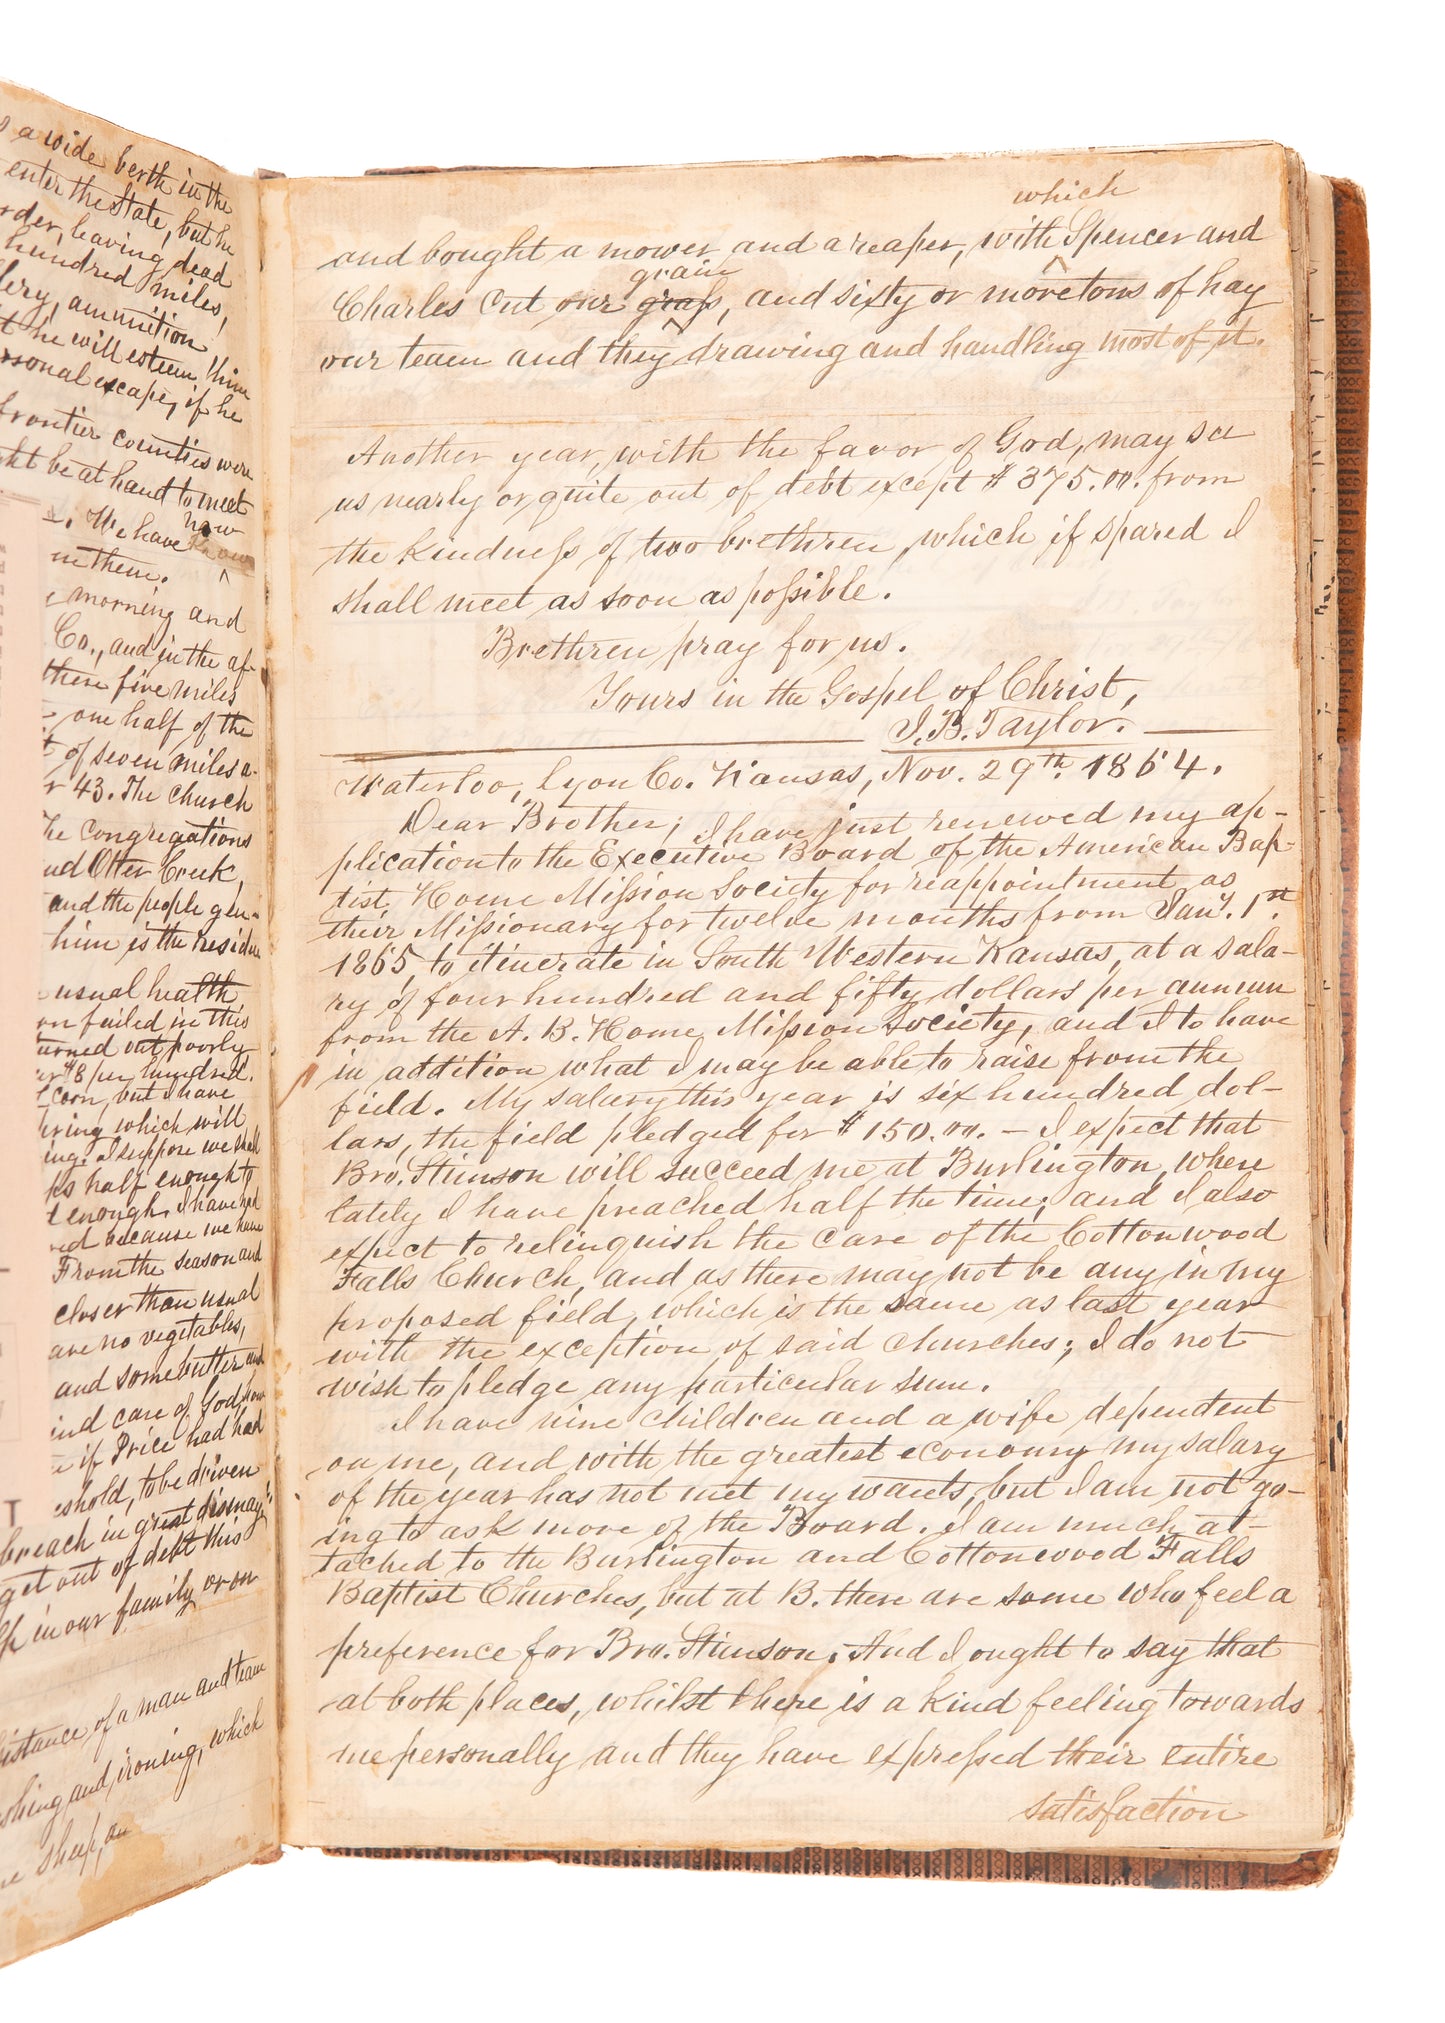 a wide berth in the
enter the State, but he
order, leaving dead
hundred miles,
ammunition
he will esteem him
personal escape, if he
frontier counties were
be at hand to meet
now
We have know
^
in them.
morning and
Co., and in the af-
these five miles
one half of the
of seven miles a-
43. The church
The congregations
Otter Creek,
and the people gen-
him is the residue
usual health
failed in this
turned out poorly
$8 per hundred.
corn, but I have
which will
I suppose we shall
half enough to
enough. I have had
because we have
From the season and
closer than usual
are no vegetables,
and some butter and
and care of God, how
if Price had had
to be driven
breach in great dismay!
get out of debt this
in our family or on
distance of a man and team
washing and ironing, which
sheep, an
which
and bought a mower and a reaper, with Spencer and
^
grain
Charles cut our grass, and sixty or more tons of hay
^
our team and they drawing and handling most of it.
Another year, with the favor of God, may see
us nearly or quite out of debt except $375.00. from
the kindness of two brethren, which if spared I
shall meet as soon as possible.
Brethren pray for us.
Yours in the Gospel of Christ,
J. B. Taylor.
Waterloo, Lyon Co. Kansas, Nov. 29th. 1864.
Dear Brother; I have just renewed my ap-
plication to the Executive Board of the American Bap-
tist Home Mission Society for reappointment as
their Missionary for twelve months from Jany. 1st.
1865, to itinerate in South Western Kansas, at a sala-
ry of four hundred and fifty dollars per annum
from the A. B. Home Mission Society, and I to have
in addition what I may be able to raise from the
field. My salary this year is six hundred dol-
lars, the field pledged for $150.00. – I expect that
Bro. Stimson will succeed me at Burlington, where
lately I have preached half the time; and I also
expect to relinquish the care of the Cottonwood
Falls Church, and as there may not be any in my
proposed field, which is the same as last year
with the exception of said churches; I do not
wish to pledge any particular sum.
I have nine children and a wife dependent
on me, and with the greatest economy my salary
of the year has not met my wants, but I am not go-
ing to ask more of the Board. I am much at-
tached to the Burlington and Cottonwood Falls
Baptist Churches, but at B. there are some who feel a
preference for Bro. Stimson. And I ought to say that
at both places, whilst there is a kind feeling towards
me personally and they have expressed their entire
satisfaction